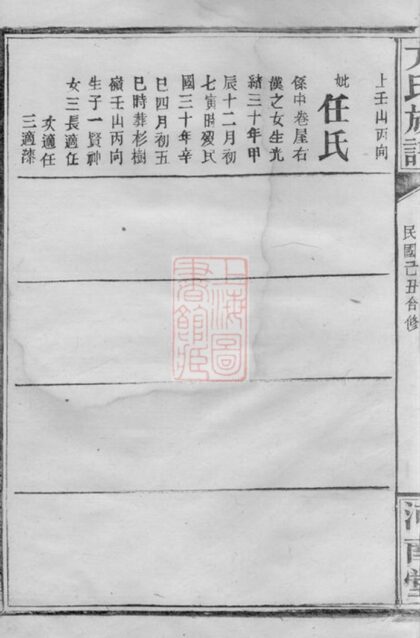 氏族譜
民國己丑合修
河南堂
上壬山丙向
妣任氏
係中卷屋右
漢之女生光
緒三十年甲
辰十二月初
七寅時歿民
國三十年辛
巳四月初五
巳時葬杉樹
嶺壬山丙向
生子一賢神
女三長適任
次適任
三適漆
上海圖書館藏